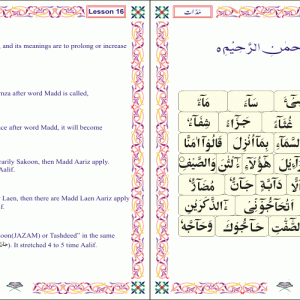 Lesson 16
, and its meanings are to prolong or increase
mza after word Madd is called,
ace after word Madd, it will become
rarily Sakoon, then Madd Aariz apply.
Aalif.
Laen, then there are Madd Laen Aariz apply
f.
oon(JAZAM) or Tashdeed" in the same
It stretched 4 to 5 time Aalif.
مَدَّات
حْمٰنِ الرَّحِيْمِ
سَآءَ مَآءً
غُثَآءً جَزَآءً شِفَآءٌ
السَّمَآءِ بِمَآ اُنْزِلَ قَالُوْٓا اٰمَنَّا
هٰٓؤُلَآءِ وَالصَّيْفِ
دَآبَّةٍ جَآنٌّ مُضَآرٍّ
اَتُحَآجُّوْٓنِّيْ ءٰٓالذَّكَرَيْنِ
حَآجُّوْكَ وَحَآجَّهٗ